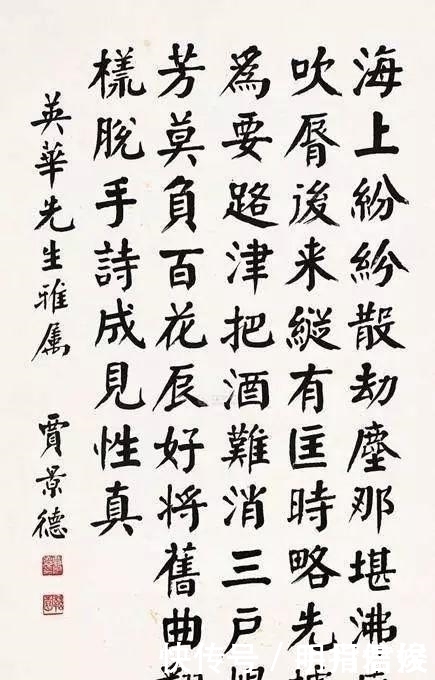 海上紛紛散劫塵那堪沸
吹脣後来縱有匡時略先
爲要路津把酒難消三戶
芳莫負百花辰好将舊曲
樣脫手詩成見性真
英華先生雅属 賈景德
快传号 /